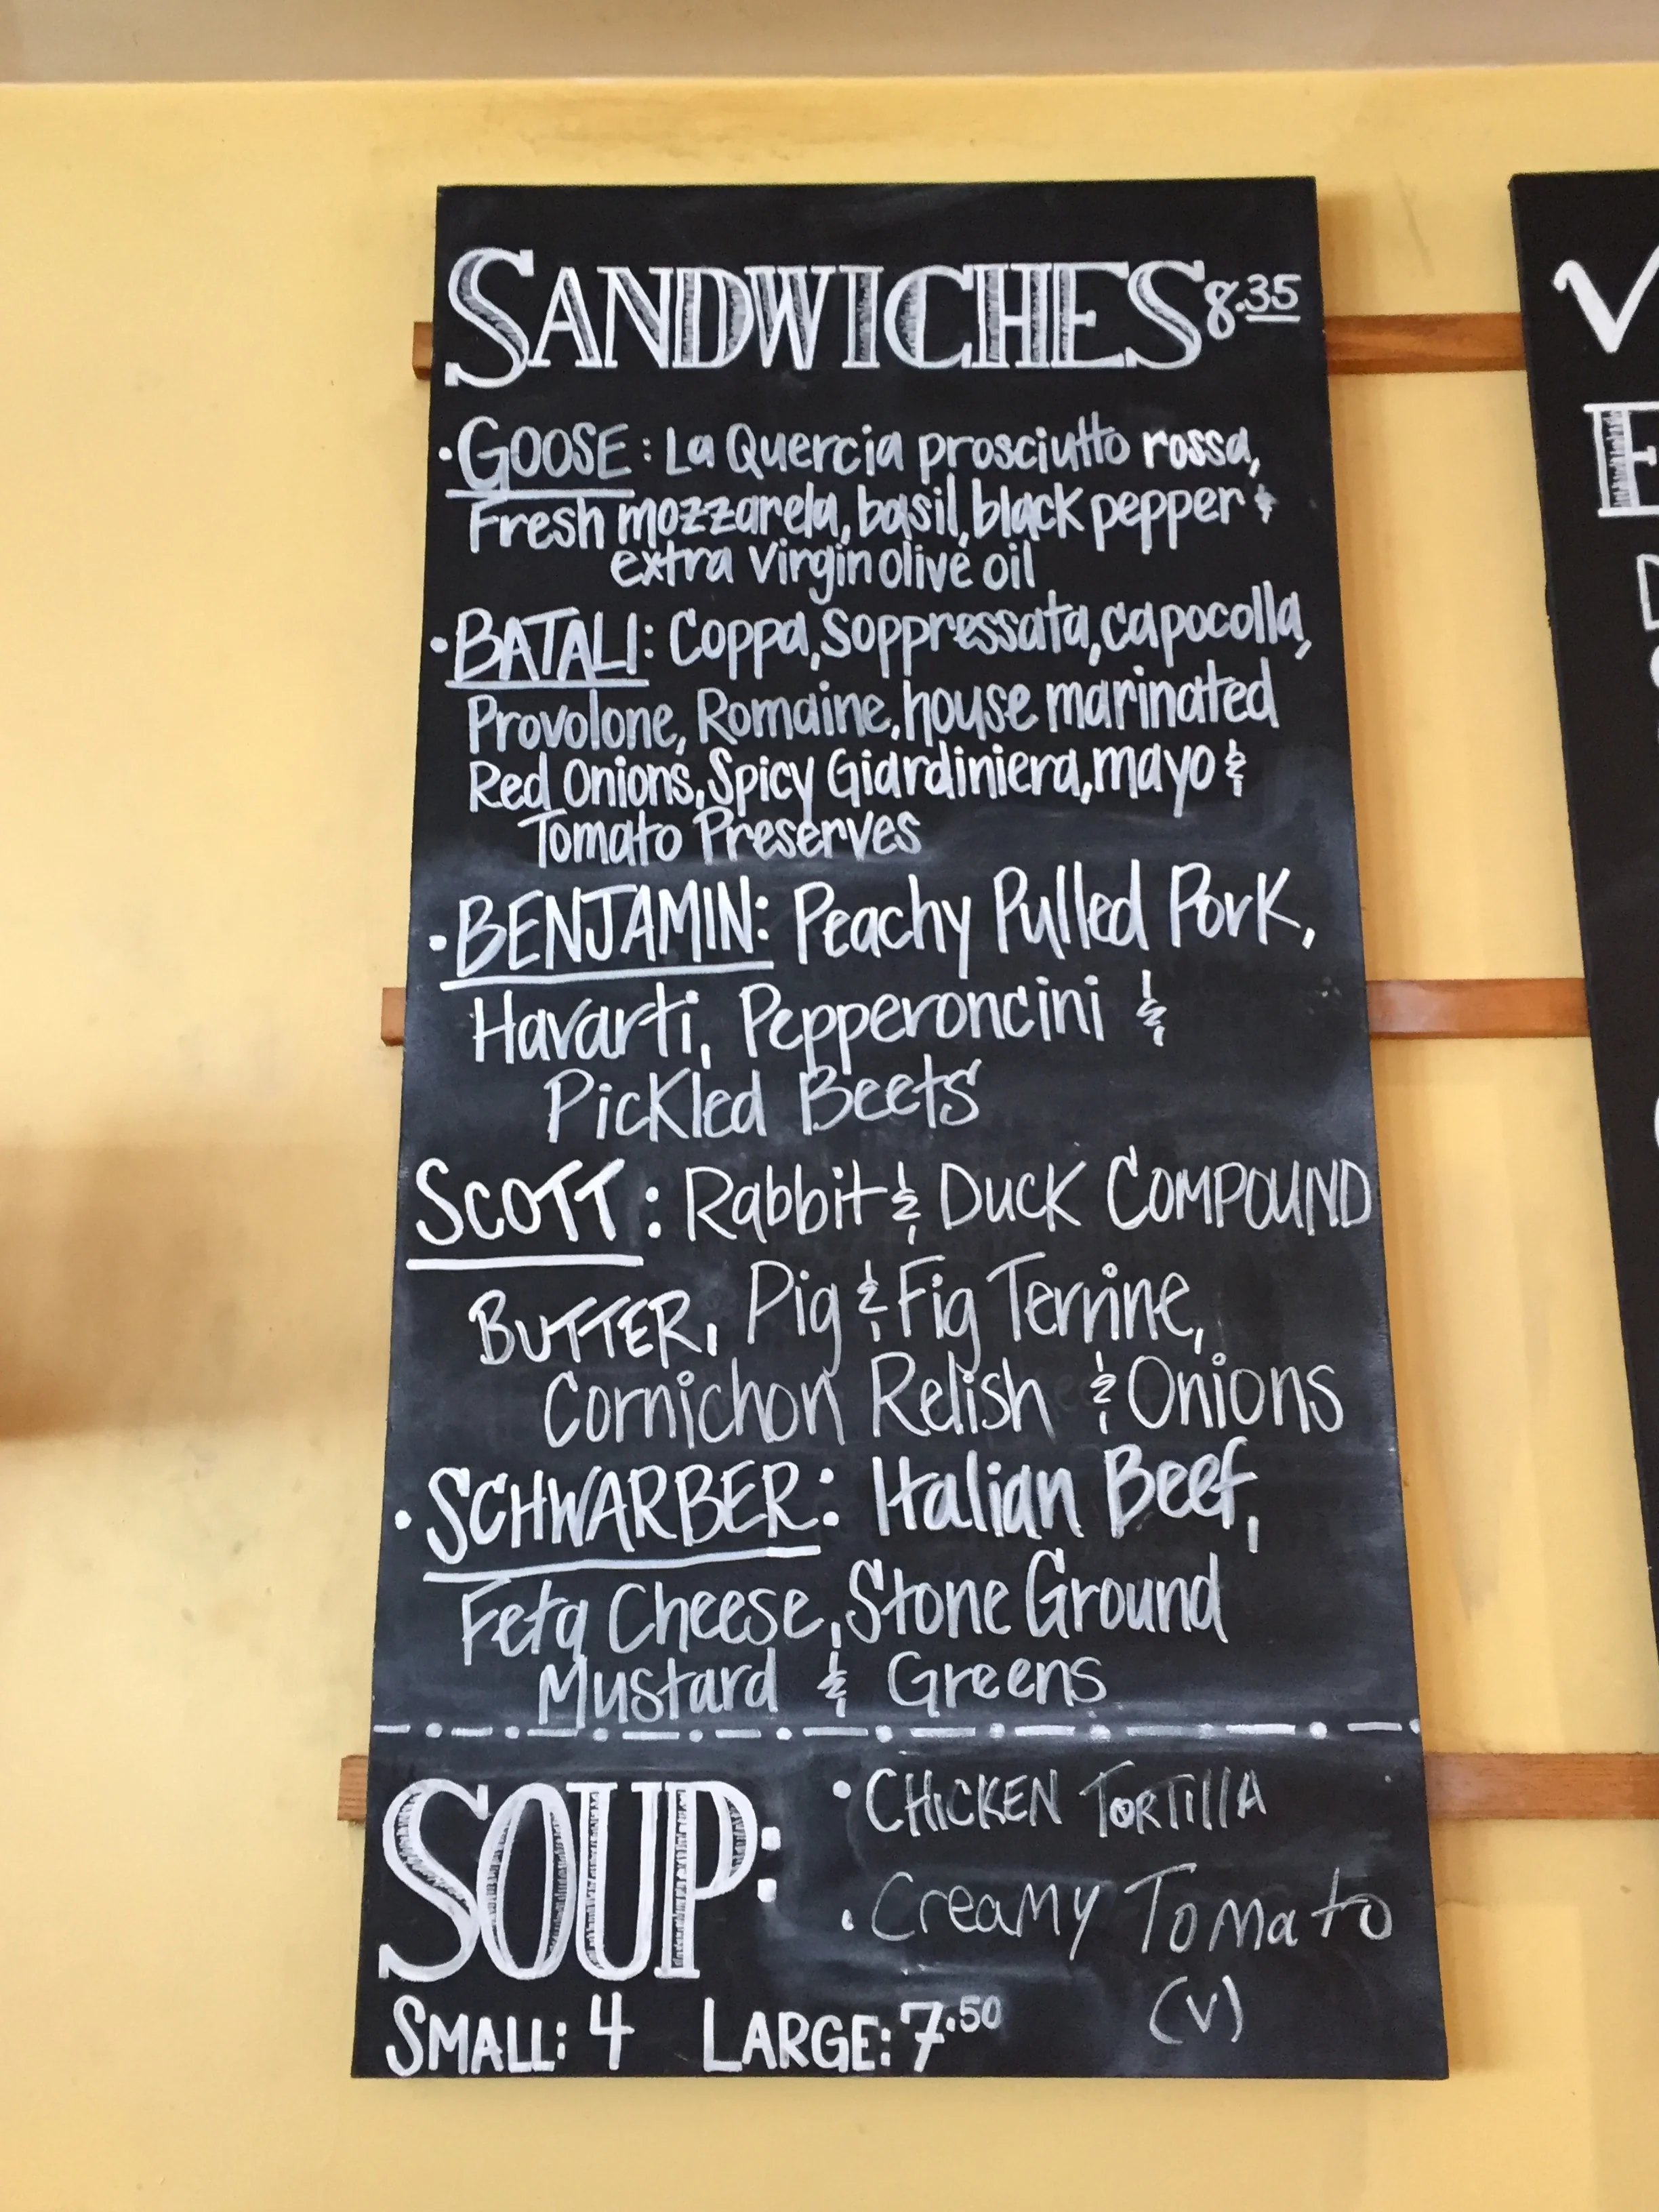 SANDWICHES 8.35
• GOOSE: La Quercia prosciutto rossa,
Fresh mozzarela, basil, black pepper &
extra virgin olive oil
• BATALI: Coppa, Soppressata, capocolla,
Provolone, Romaine, house marinated
Red Onions, Spicy Giardiniera, mayo &
Tomato Preserves
• BENJAMIN: Peachy Pulled Pork,
Havarti, Pepperoncini &
Pickled Beets
SCOTT: Rabbit & Duck COMPOUND
BUTTER, Pig & Fig Terrine,
Cornichon Relish & Onions
• SCHWARBER: Italian Beef,
Feta Cheese, Stone Ground
Mustard & Greens
SOUP:
• CHICKEN TORTILLA
• Creamy Tomato
(V)
SMALL: 4 LARGE: 7.50